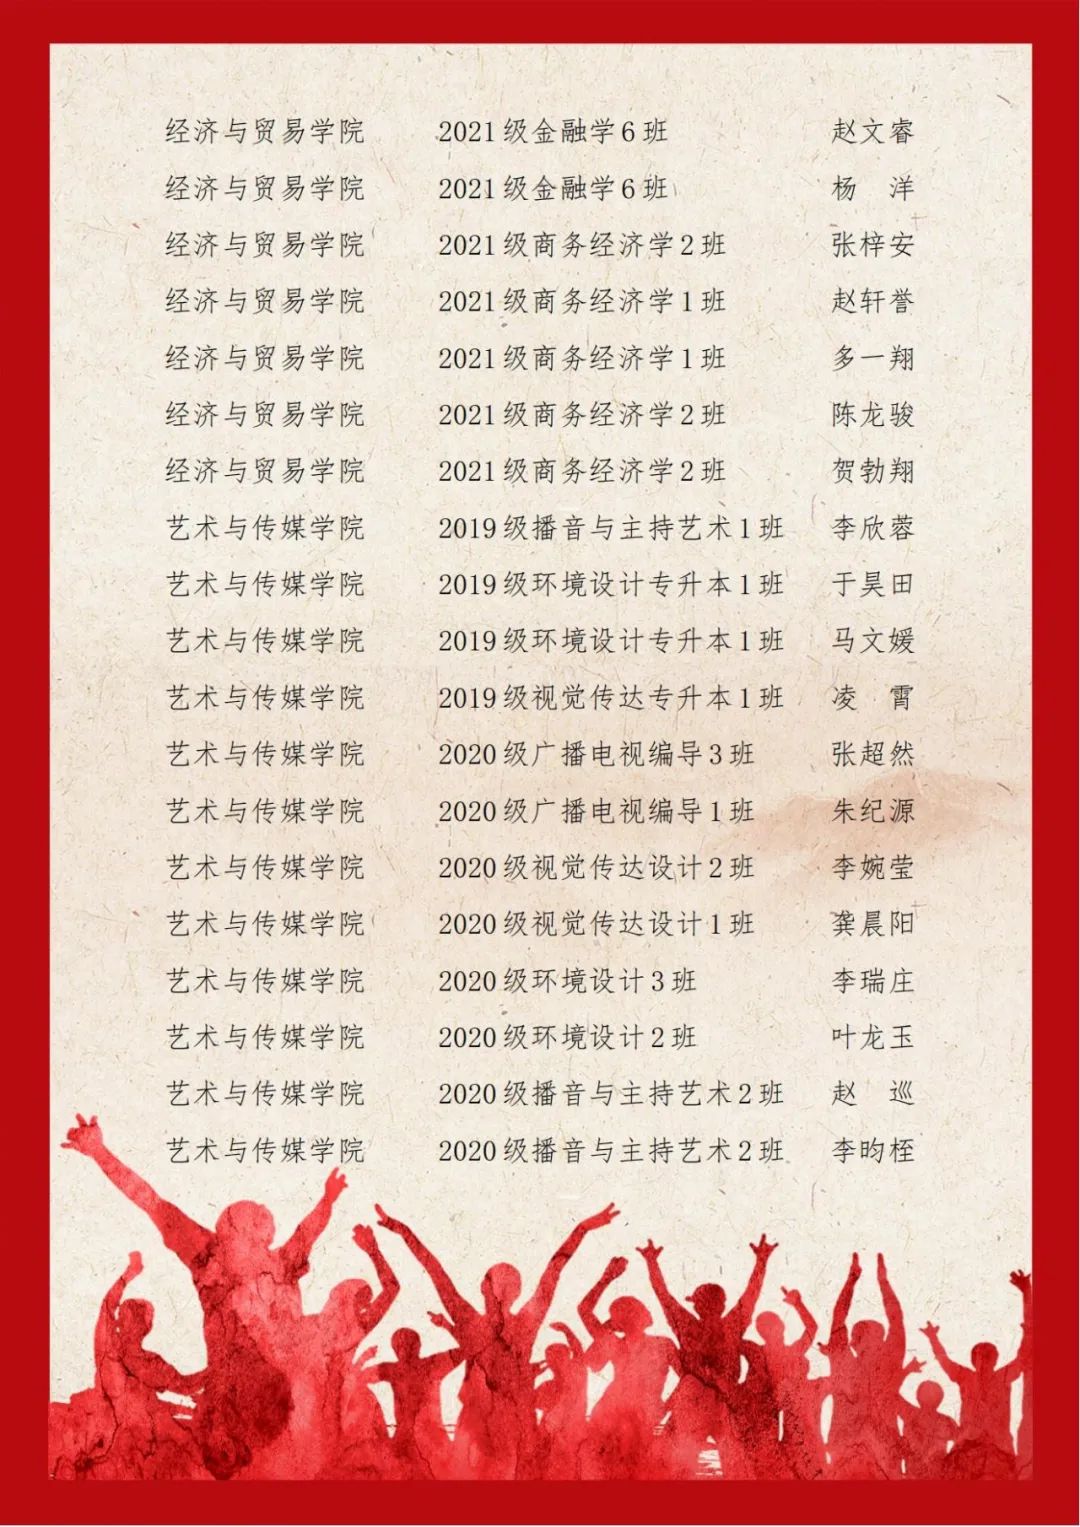 经济与贸易学院 2021级金融学6班 赵文睿
经济与贸易学院 2021级金融学6班 杨 洋
经济与贸易学院 2021级商务经济学2班 张梓安
经济与贸易学院 2021级商务经济学1班 赵轩誉
经济与贸易学院 2021级商务经济学1班 多一翔
经济与贸易学院 2021级商务经济学2班 陈龙骏
经济与贸易学院 2021级商务经济学2班 贺勃翔
艺术与传媒学院 2019级播音与主持艺术1班 李欣蓉
艺术与传媒学院 2019级环境设计专升本1班 于昊田
艺术与传媒学院 2019级环境设计专升本1班 马文媛
艺术与传媒学院 2019级视觉传达专升本1班 凌 霄
艺术与传媒学院 2020级广播电视编导3班 张超然
艺术与传媒学院 2020级广播电视编导1班 朱纪源
艺术与传媒学院 2020级视觉传达设计2班 李婉莹
艺术与传媒学院 2020级视觉传达设计1班 龚晨阳
艺术与传媒学院 2020级环境设计3班 李瑞庄
艺术与传媒学院 2020级环境设计2班 叶龙玉
艺术与传媒学院 2020级播音与主持艺术2班 赵 巡
艺术与传媒学院 2020级播音与主持艺术2班 李昀桎